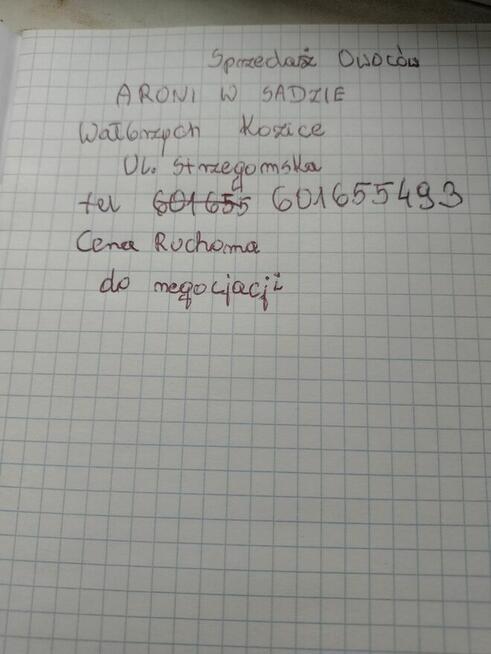 Sprzedaż Owoców
ARONI W SADZIE
Wałbrzych Kozice
Ul. Strzegomska
tel 601655 601655493
Cena Ruchoma
do negocjacji